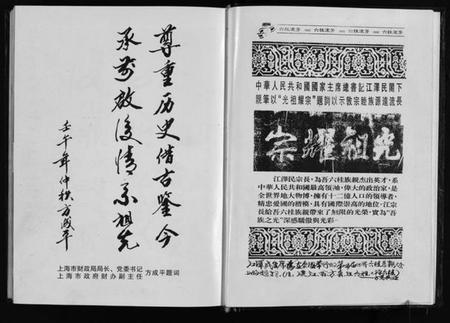 尊重历史借古鉴今
承前啟後情系祖先
壬午年仲秋方成平
上海市财政局局长、党委书记
上海市政府财办副主任
方成平题词
六桂流芳 六桂流芳 六桂流芳
中華人民共和國國家主席總書記江澤民閣下
親筆以“光祖耀宗”題詞以示啟宗姓族源遠流長
光祖耀宗
江澤民宗長，為吾六桂族親杰出英才，系
中華人民共和國最高領袖，偉大的政治家，是
全世界地大物博，擁有十二億人口的領導者，
精忠愛國的楷模，具有國際崇高的地位，江宗
長給吾六桂族親帶來了無限的光榮，實為“吾
族之光”深感驕傲與光彩。